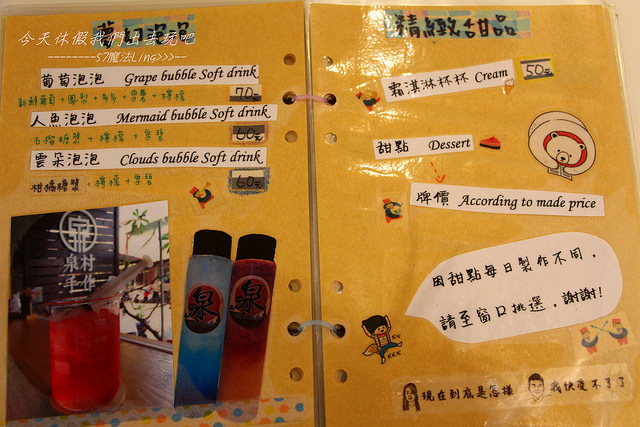 今天休假我們出去玩吧
--------57魔法Ling>>>--
夢幻逸品
葡萄泡泡 Grape bubble Soft drink
70元
新鮮葡萄+鳳梨+多多+雪碧+檸檬
人魚泡泡 Mermaid bubble Soft drink
60元
石榴糖漿+檸檬+雪碧
雲朵泡泡 Clouds bubble Soft drink
60元
柑橘糖漿+檸檬+雪碧
泉村
手作
泉
泉
精緻甜品
霜淇淋杯杯 Cream
50元
甜點 Dessert
牌價 According to made price
因甜點每日製作不同,
請至窗口挑選,謝謝!
現在到底是怎樣
我快受不了了